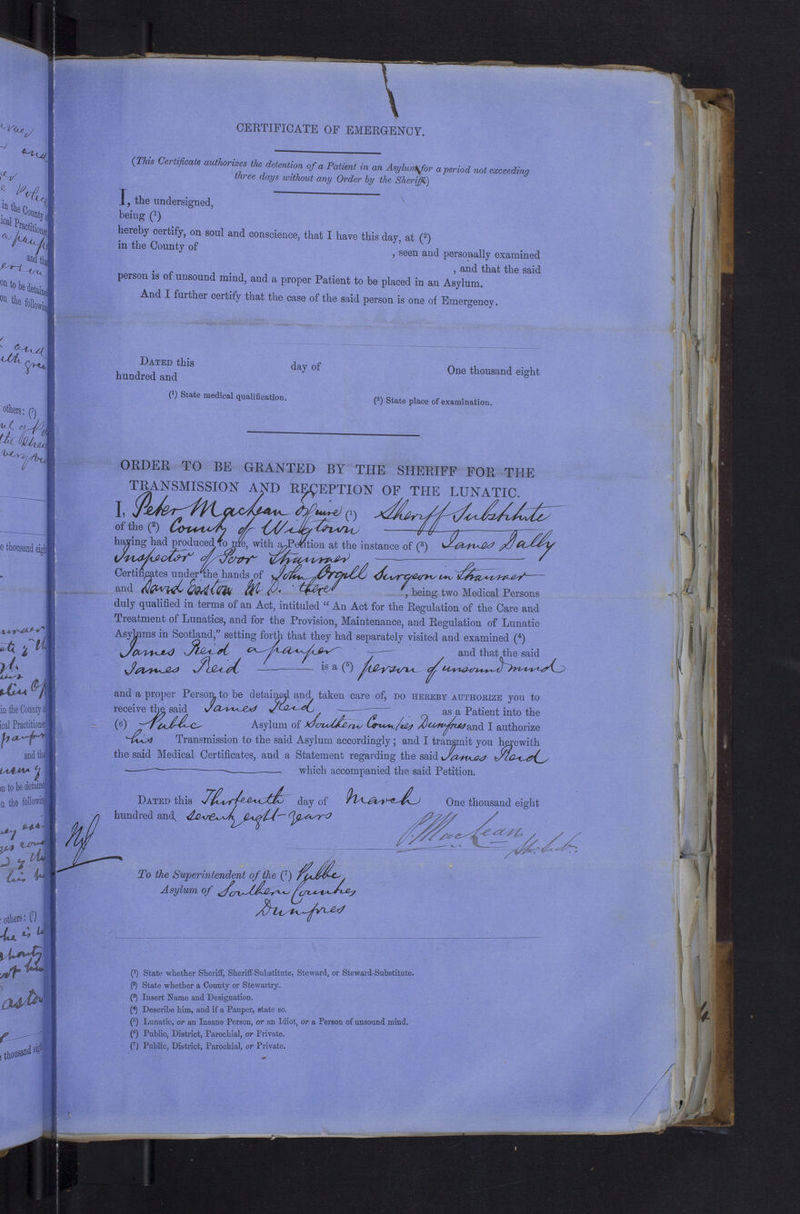 CERTIFICATE OF EMERGENCY.
(This Certificate authorizes the detention of a Patient in an Asylum for a period not exceeding
three days without any Order by the Sheriff.)
I, the undersigned,
being (¹)
hereby certify, on soul and conscience, that I have this day, at (²)
in the County of , seen and personally examined
, and that the said
person is of unsound mind, and a proper Patient to be placed in an Asylum.
And I further certify that the case of the said person is one of Emergency.
DATED this day of One thousand eight
hundred and
(¹) State medical qualification. (²) State place of examination.
ORDER TO BE GRANTED BY THE SHERIFF FOR THE
TRANSMISSION AND RECEPTION OF THE LUNATIC.
I, Peter Maclean Esquire (¹) Sheriff Substitute
of the (²) County of Wigtown
having had produced to me, with a Petition at the instance of (³) James Dally
Inspector of Poor Stranraer
Certificates under the hands of John Orgill Surgeon in Stranraer
and David Easton M.D. there , being two Medical Persons
duly qualified in terms of an Act, intituled “ An Act for the Regulation of the Care and
Treatment of Lunatics, and for the Provision, Maintenance, and Regulation of Lunatic
Asylums in Scotland,” setting forth that they had separately visited and examined (⁴)
James Reid a pauper and that the said
James Reid is a (⁵) person of unsound mind
and a proper Person to be detained and taken care of, DO HEREBY AUTHORIZE you to
receive the said James Reid as a Patient into the
(⁶) Public Asylum of Southern Counties Dumfries and I authorize
his Transmission to the said Asylum accordingly; and I transmit you herewith
the said Medical Certificates, and a Statement regarding the said James Reid
which accompanied the said Petition.
DATED this Thirteenth day of March One thousand eight
hundred and seventy eight years
P. Maclean
Sh. Sub.
To the Superintendent of the (⁷) Public
Asylum of Southern Counties
Dumfries
(¹) State whether Sheriff, Sheriff-Substitute, Steward, or Steward-Substitute.
(²) State whether a County or Stewartry.
(³) Insert Name and Designation.
(⁴) Describe him, and if a Pauper, state so.
(⁵) Lunatic, or an Insane Person, or an Idiot, or a Person of unsound mind.
(⁶) Public, District, Parochial, or Private.
(⁷) Public, District, Parochial, or Private.